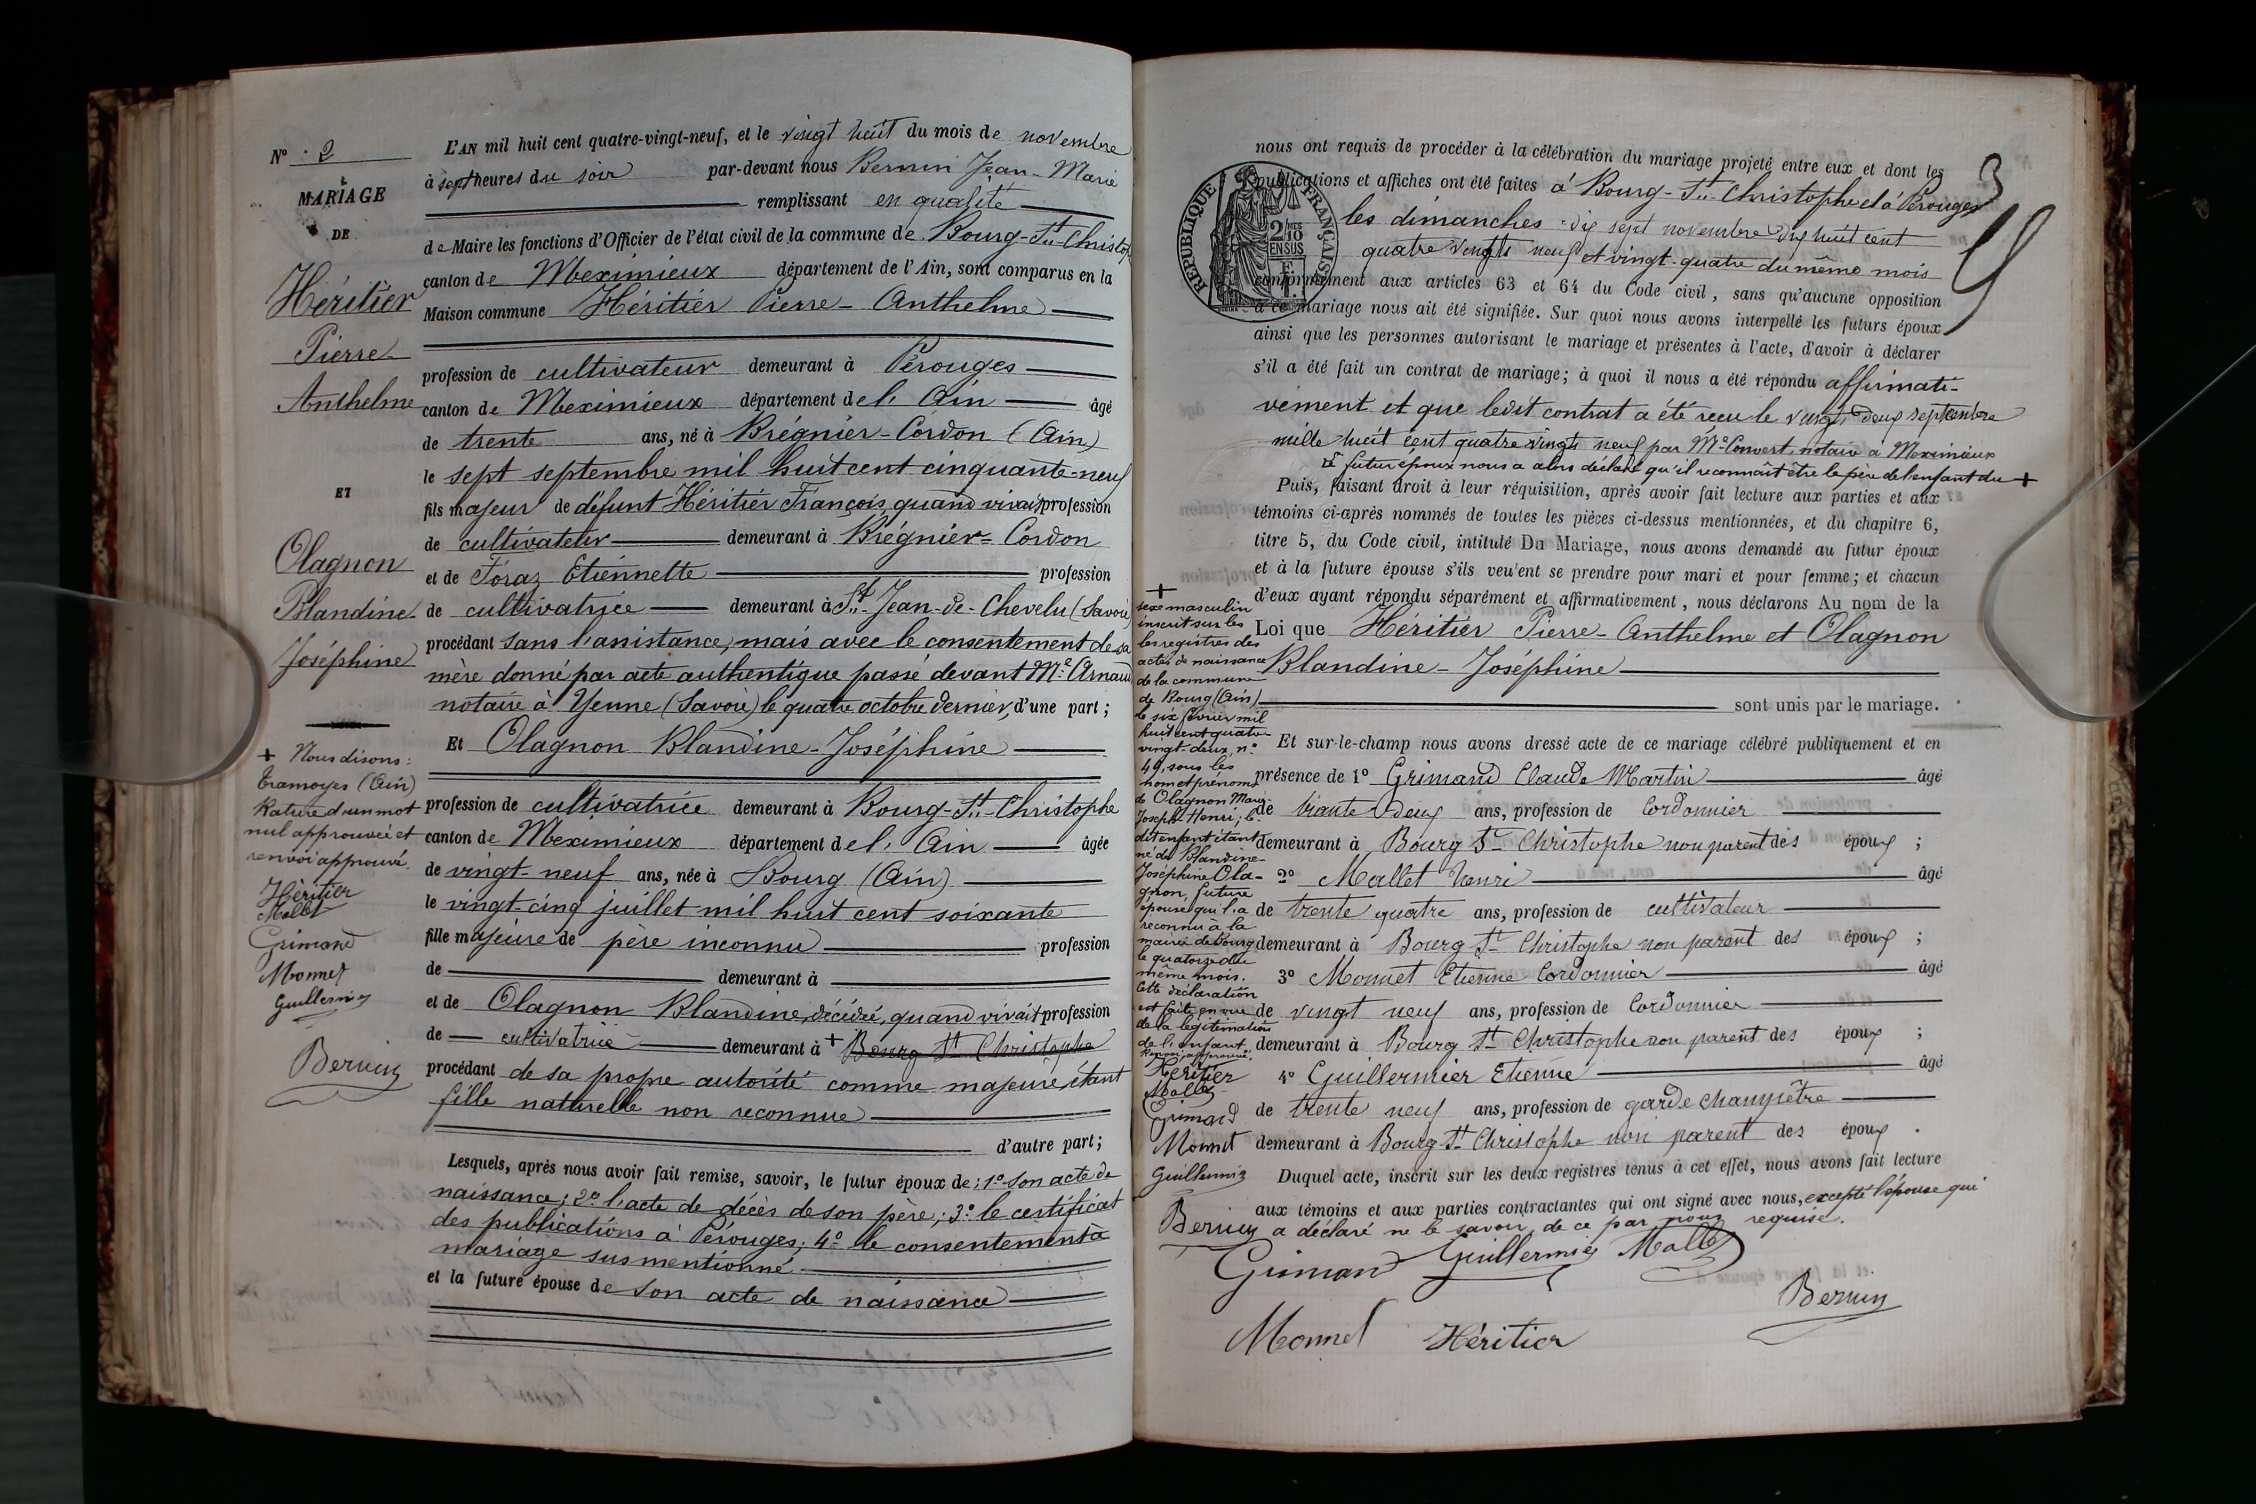 N° 2
MARIAGE
DE
Héritier
Pierre
Anthelme
ET
Olagnon
Blandine
Joséphine
+ Nous disons :
Tramoyes (Ain)
Rature d'un mot
nul approuvée et
renvoi approuvé.
Héritier
Mallet
Grimand
Monnet
Guillermier
Bernin
L'AN mil huit cent quatre-vingt-neuf, et le vingt huit du mois de novembre
à sept heures du soir par-devant nous Bernin Jean-Marie
remplissant en qualité
de Maire les fonctions d'Officier de l'état civil de la commune de Bourg-St-Christophe
canton de Meximieux département de l'Ain, sont comparus en la
Maison commune Héritier Pierre-Anthelme
profession de cultivateur demeurant à Pérouges
canton de Meximieux département de l'Ain âgé
de trente ans, né à Brégnier-Cordon (Ain)
le sept septembre mil huit cent cinquante-neuf
fils majeur de défunt Héritier François, quand vivait profession
de cultivateur demeurant à Brégnier-Cordon
et de Foraz Etiennette profession
de cultivatrice demeurant à St-Jean-de-Chevelu (Savoie)
procédant sans l'assistance, mais avec le consentement de sa
mère donné par acte authentique passé devant Me Arnaud
notaire à Yenne (Savoie) le quatre octobre dernier, d'une part ;
Et Olagnon Blandine-Joséphine
profession de cultivatrice demeurant à Bourg-St-Christophe
canton de Meximieux département de l'Ain âgée
de vingt-neuf ans, née à Bourg (Ain)
le vingt cinq juillet mil huit cent soixante
fille majeure de père inconnu profession
de demeurant à
et de Olagnon Blandine, décédée, quand vivait profession
de cultivatrice demeurant à + Bourg St Christophe
procédant de sa propre autorité comme majeure, étant
fille naturelle non reconnue
d'autre part ;
Lesquels, après nous avoir fait remise, savoir, le futur époux de : 1° son acte de
naissance ; 2° l'acte de décès de son père ; 3° le certificat
des publications à Pérouges ; 4° le consentement à
mariage susmentionné
et la future épouse de son acte de naissance
3
nous ont requis de procéder à la célébration du mariage projeté entre eux et dont les
publications et affiches ont été faites à Bourg-St-Christophe et à Pérouges
les dimanches dix sept novembre dix huit cent
quatre vingt neuf et vingt-quatre du même mois
conformément aux articles 63 et 64 du Code civil, sans qu'aucune opposition
à ce mariage nous ait été signifiée. Sur quoi nous avons interpellé les futurs époux
ainsi que les personnes autorisant le mariage et présentes à l'acte, d'avoir à déclarer
s'il a été fait un contrat de mariage ; à quoi il nous a été répondu affirmati-
vement et que ledit contrat a été reçu le vingt deux septembre
mille huit cent quatre vingt neuf par Me Convert notaire à Meximieux
Le futur époux nous a alors déclaré qu'il reconnaît être le père de l'enfant du +
Puis, faisant droit à leur réquisition, après avoir fait lecture aux parties et aux
témoins ci-après nommés de toutes les pièces ci-dessus mentionnées, et du chapitre 6,
titre 5, du Code civil, intitulé Du Mariage, nous avons demandé au futur époux
et à la future épouse s'ils veulent se prendre pour mari et pour femme ; et chacun
d'eux ayant répondu séparément et affirmativement, nous déclarons Au nom de la
Loi que Héritier Pierre-Anthelme et Olagnon
Blandine-Joséphine
sont unis par le mariage.
Et sur-le-champ nous avons dressé acte de ce mariage célébré publiquement et en
présence de 1° Grimand Claude Martin âgé
de trente deux ans, profession de Cordonnier
demeurant à Bourg St Christophe non parent des époux ;
2° Mallet Henri âgé
de trente quatre ans, profession de cultivateur
demeurant à Bourg St Christophe non parent des époux ;
3° Monnet Etienne Cordonnier âgé
de vingt neuf ans, profession de Cordonnier
demeurant à Bourg St Christophe non parent des époux ;
4° Guillermier Etienne âgé
de trente neuf ans, profession de garde champêtre
demeurant à Bourg St Christophe non parent des époux.
Duquel acte, inscrit sur les deux registres tenus à cet effet, nous avons fait lecture
aux témoins et aux parties contractantes qui ont signé avec nous, excepté l'épouse qui
a déclaré ne le savoir, de ce par nous requise.
Grimand Guillermier Mallet
Bernin
Monnet Héritier
+
sexe masculin
inscrit sur les
les registres des
actes de naissance
de la commune
de Bourg (Ain)
le six février mil
huit cent quatre-
vingt-deux, n°
49, sous les
nom et prénoms
de Olagnon Marie-
Joseph-Henri ; le
dit enfant étant
né de Blandine-
Joséphine Ola-
gnon, future
épouse qui l'a
reconnu à la
mairie de Bourg
le quatorze du
même mois.
Cette déclaration
est faite en vue
de la légitimation
de l'enfant.
Renvoi approuvé.
Héritier
Mallet
Grimand
Monnet
Guillermier
Bernin
REPUBLIQUE FRANÇAISE
2/10
EN SUS